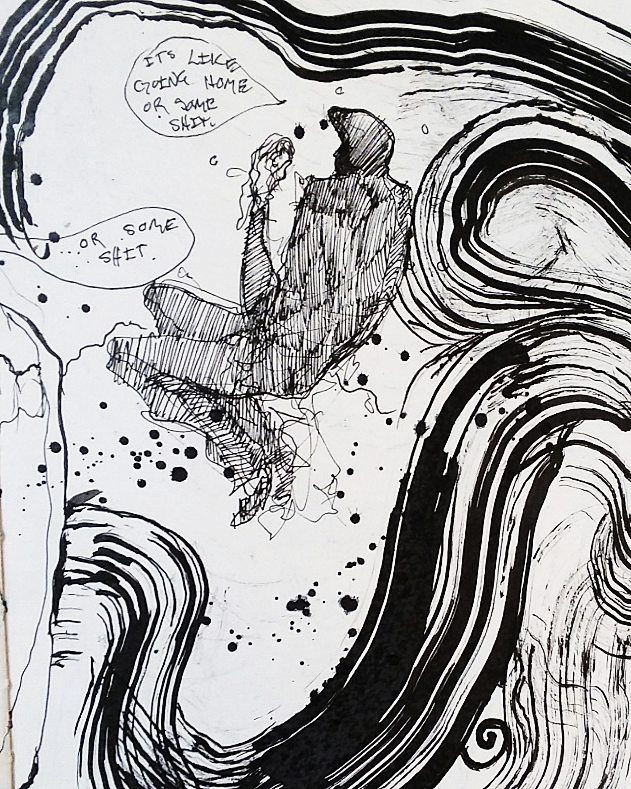 ITS LIKE
GOING HOME
OR SOME
SHIT.
OR SOME
SHIT.